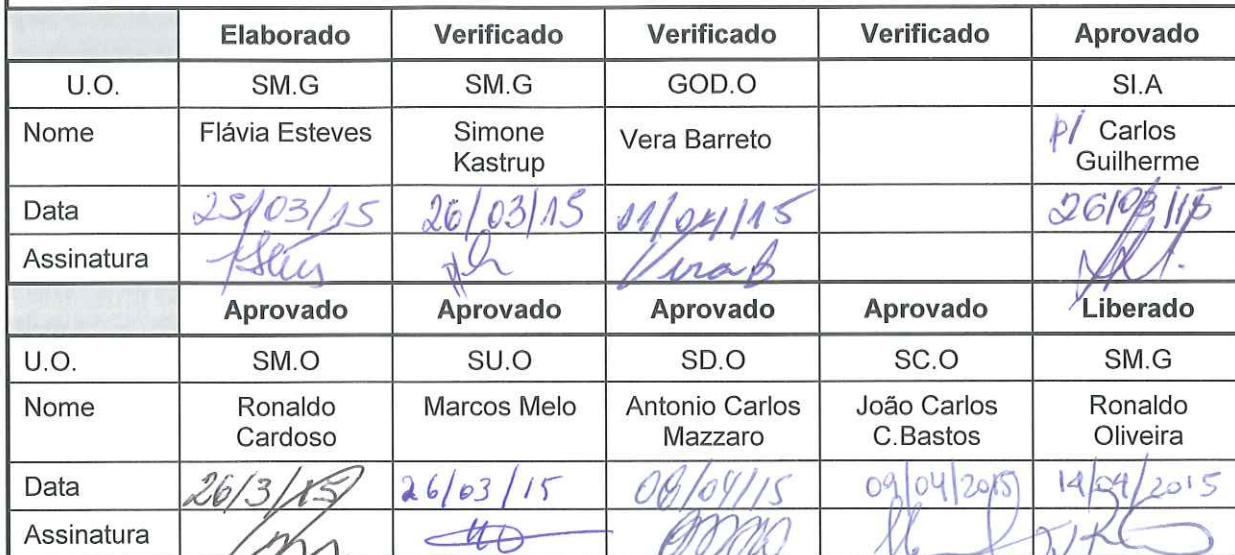 Elaborado Verificado Verificado Verificado Aprovado
U.O. SM.G SM.G GOD.O SI.A
Nome Flávia Esteves Simone Kastrup Vera Barreto p/ Carlos Guilherme
Data 25/03/15 26/03/15 01/04/15 26/03/15
Assinatura Vera B
Aprovado Aprovado Aprovado Aprovado Liberado
U.O. SM.O SU.O SD.O SC.O SM.G
Nome Ronaldo Cardoso Marcos Melo Antonio Carlos Mazzaro João Carlos C.Bastos Ronaldo Oliveira
Data 26/3/15 26/03/15 09/04/15 09/04/2015 14/04/2015
Assinatura